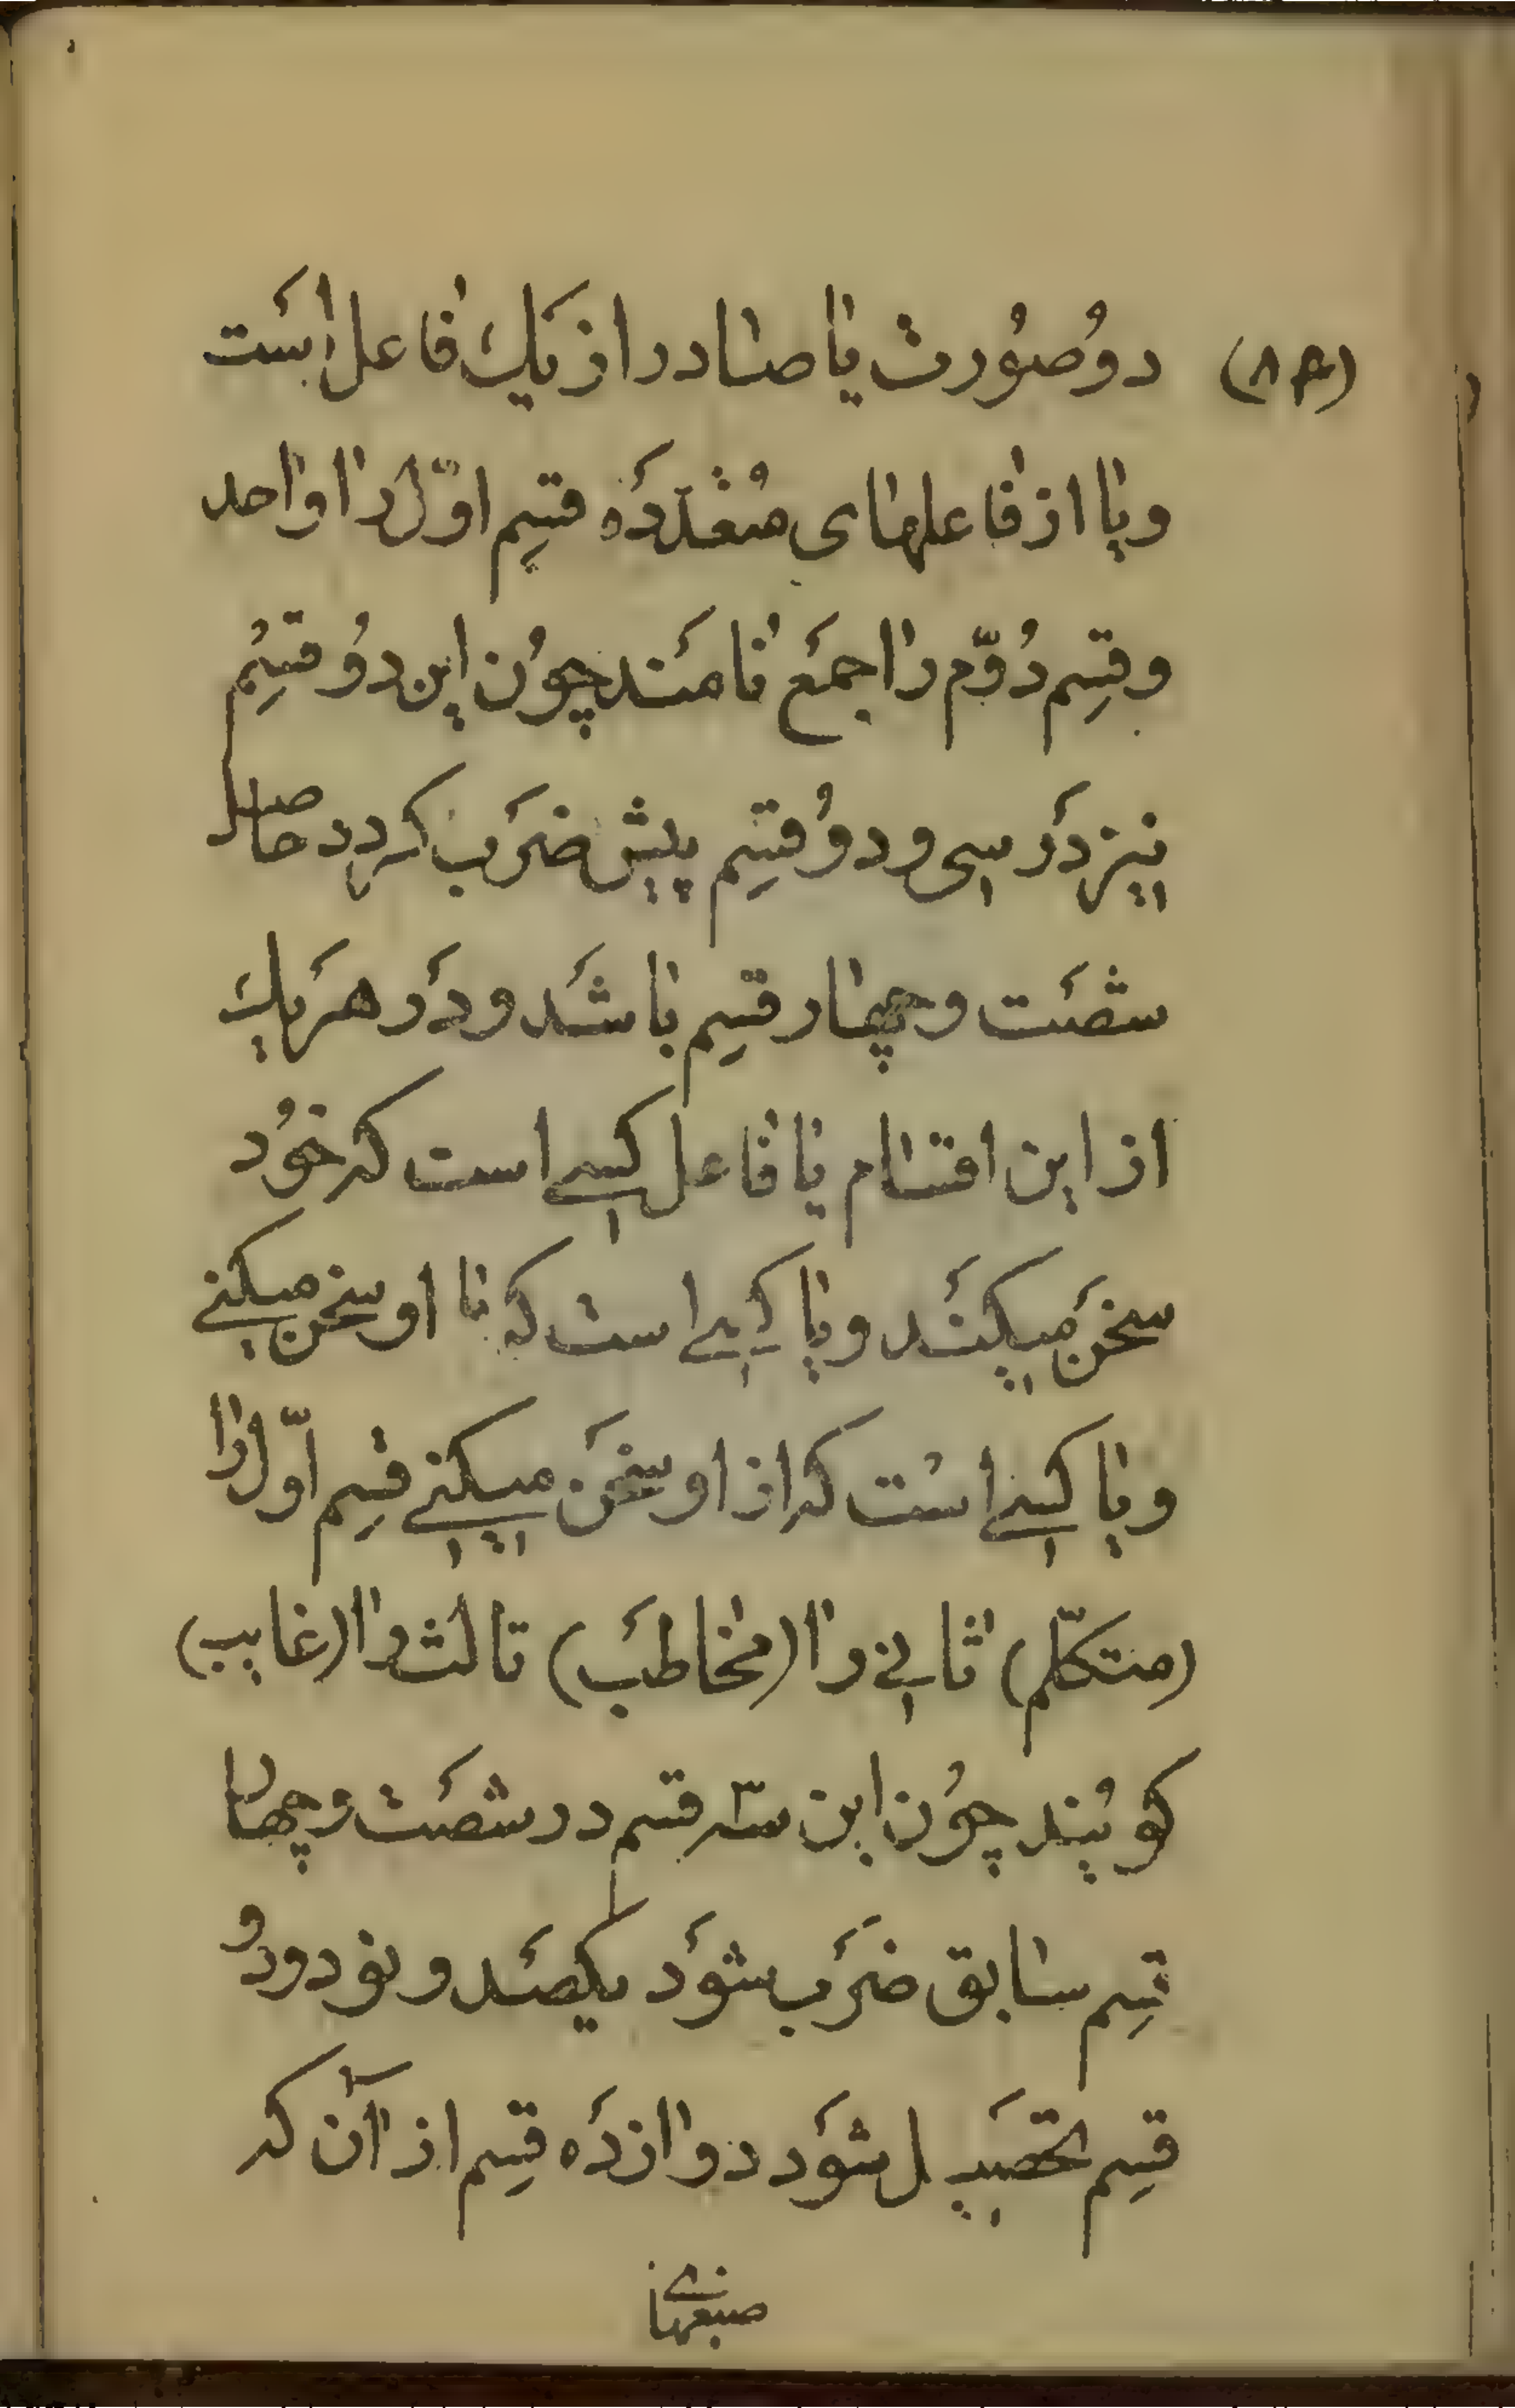 (۸۴) دو صورت یا صادر از یک فاعل است
و یا از فاعلهای متعدده قسم اوّل را واحد
و قسم دوّم را جمع نامند چون این دو قسم
نیز در سی و دو قسم پیش ضرب کردد حاصل
شصت و چهار قسم باشد و در هر یک
از این اقسام یا فاعل کسی است که خود
سخن میکند و یا کسی است که با او سخن میکنی
و یا کسی است که از او سخن میکنی قسم اوّل را
(متکلّم) ثانی را (مخاطب) ثالث را (غایب)
کویند چون این سه قسم در شصت و چهار
قسم سابق ضرب شود یکصد و نود و دو
قسم تحصیل شود دوازده قسم از آن که
صیغهای